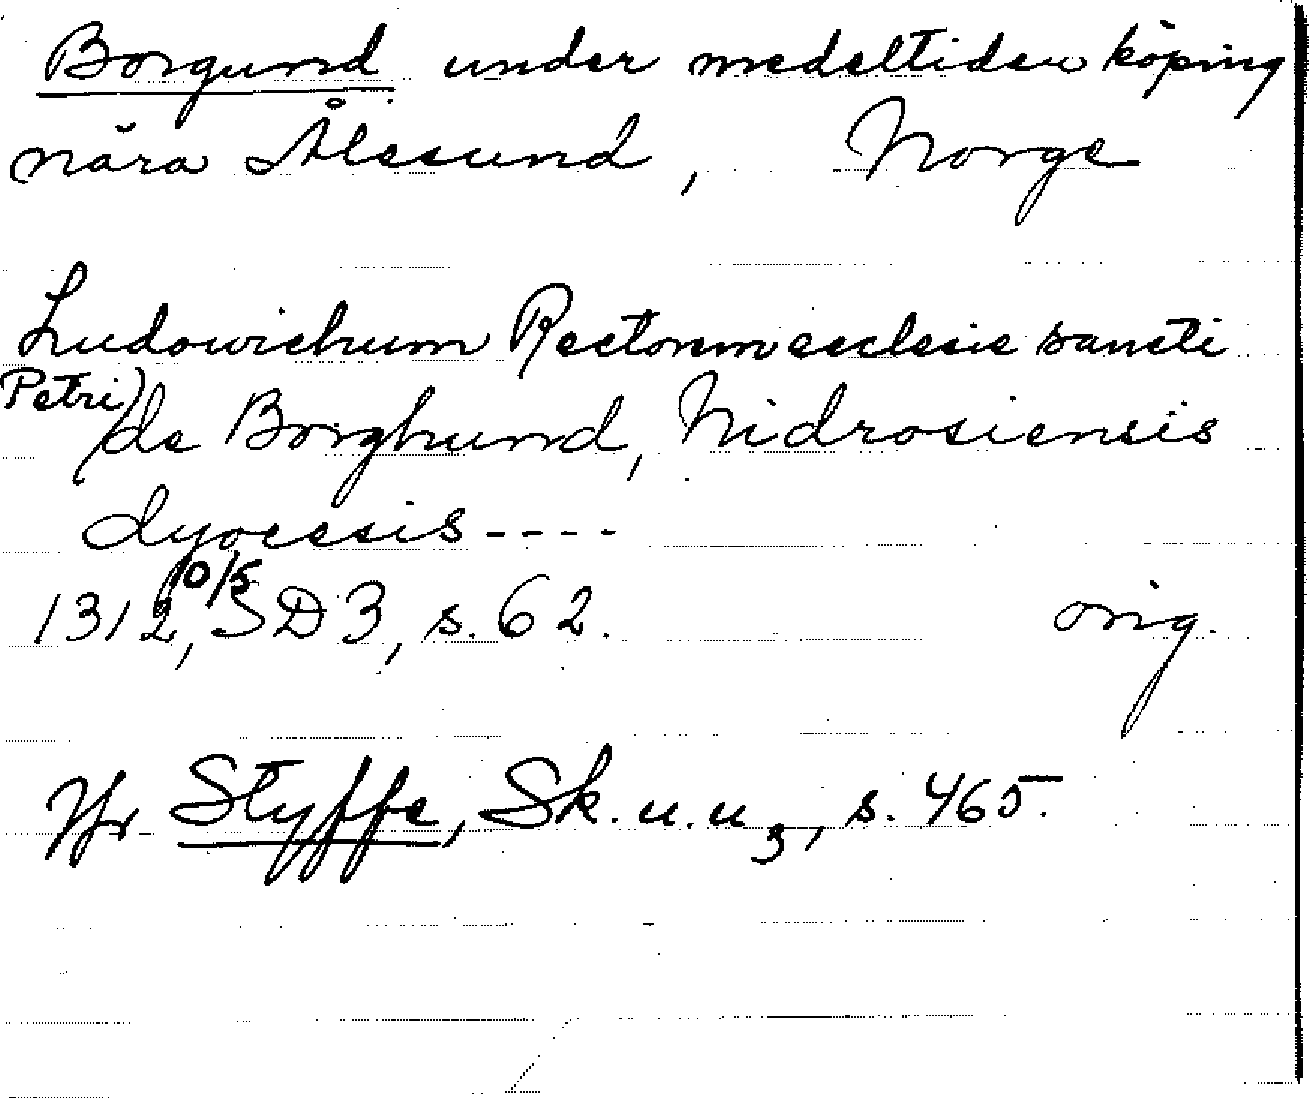 Borgund under medeltiden köping
nära Ålesund, Norge
Ludowichum Rectorem ecclesie sancti
Petri)
de Borghund, Nidrosiensis
dyocesis----
1312 10/5, SD3, s. 62. orig.
Jfr Styffe, Sk. u. u 3, s. 465.